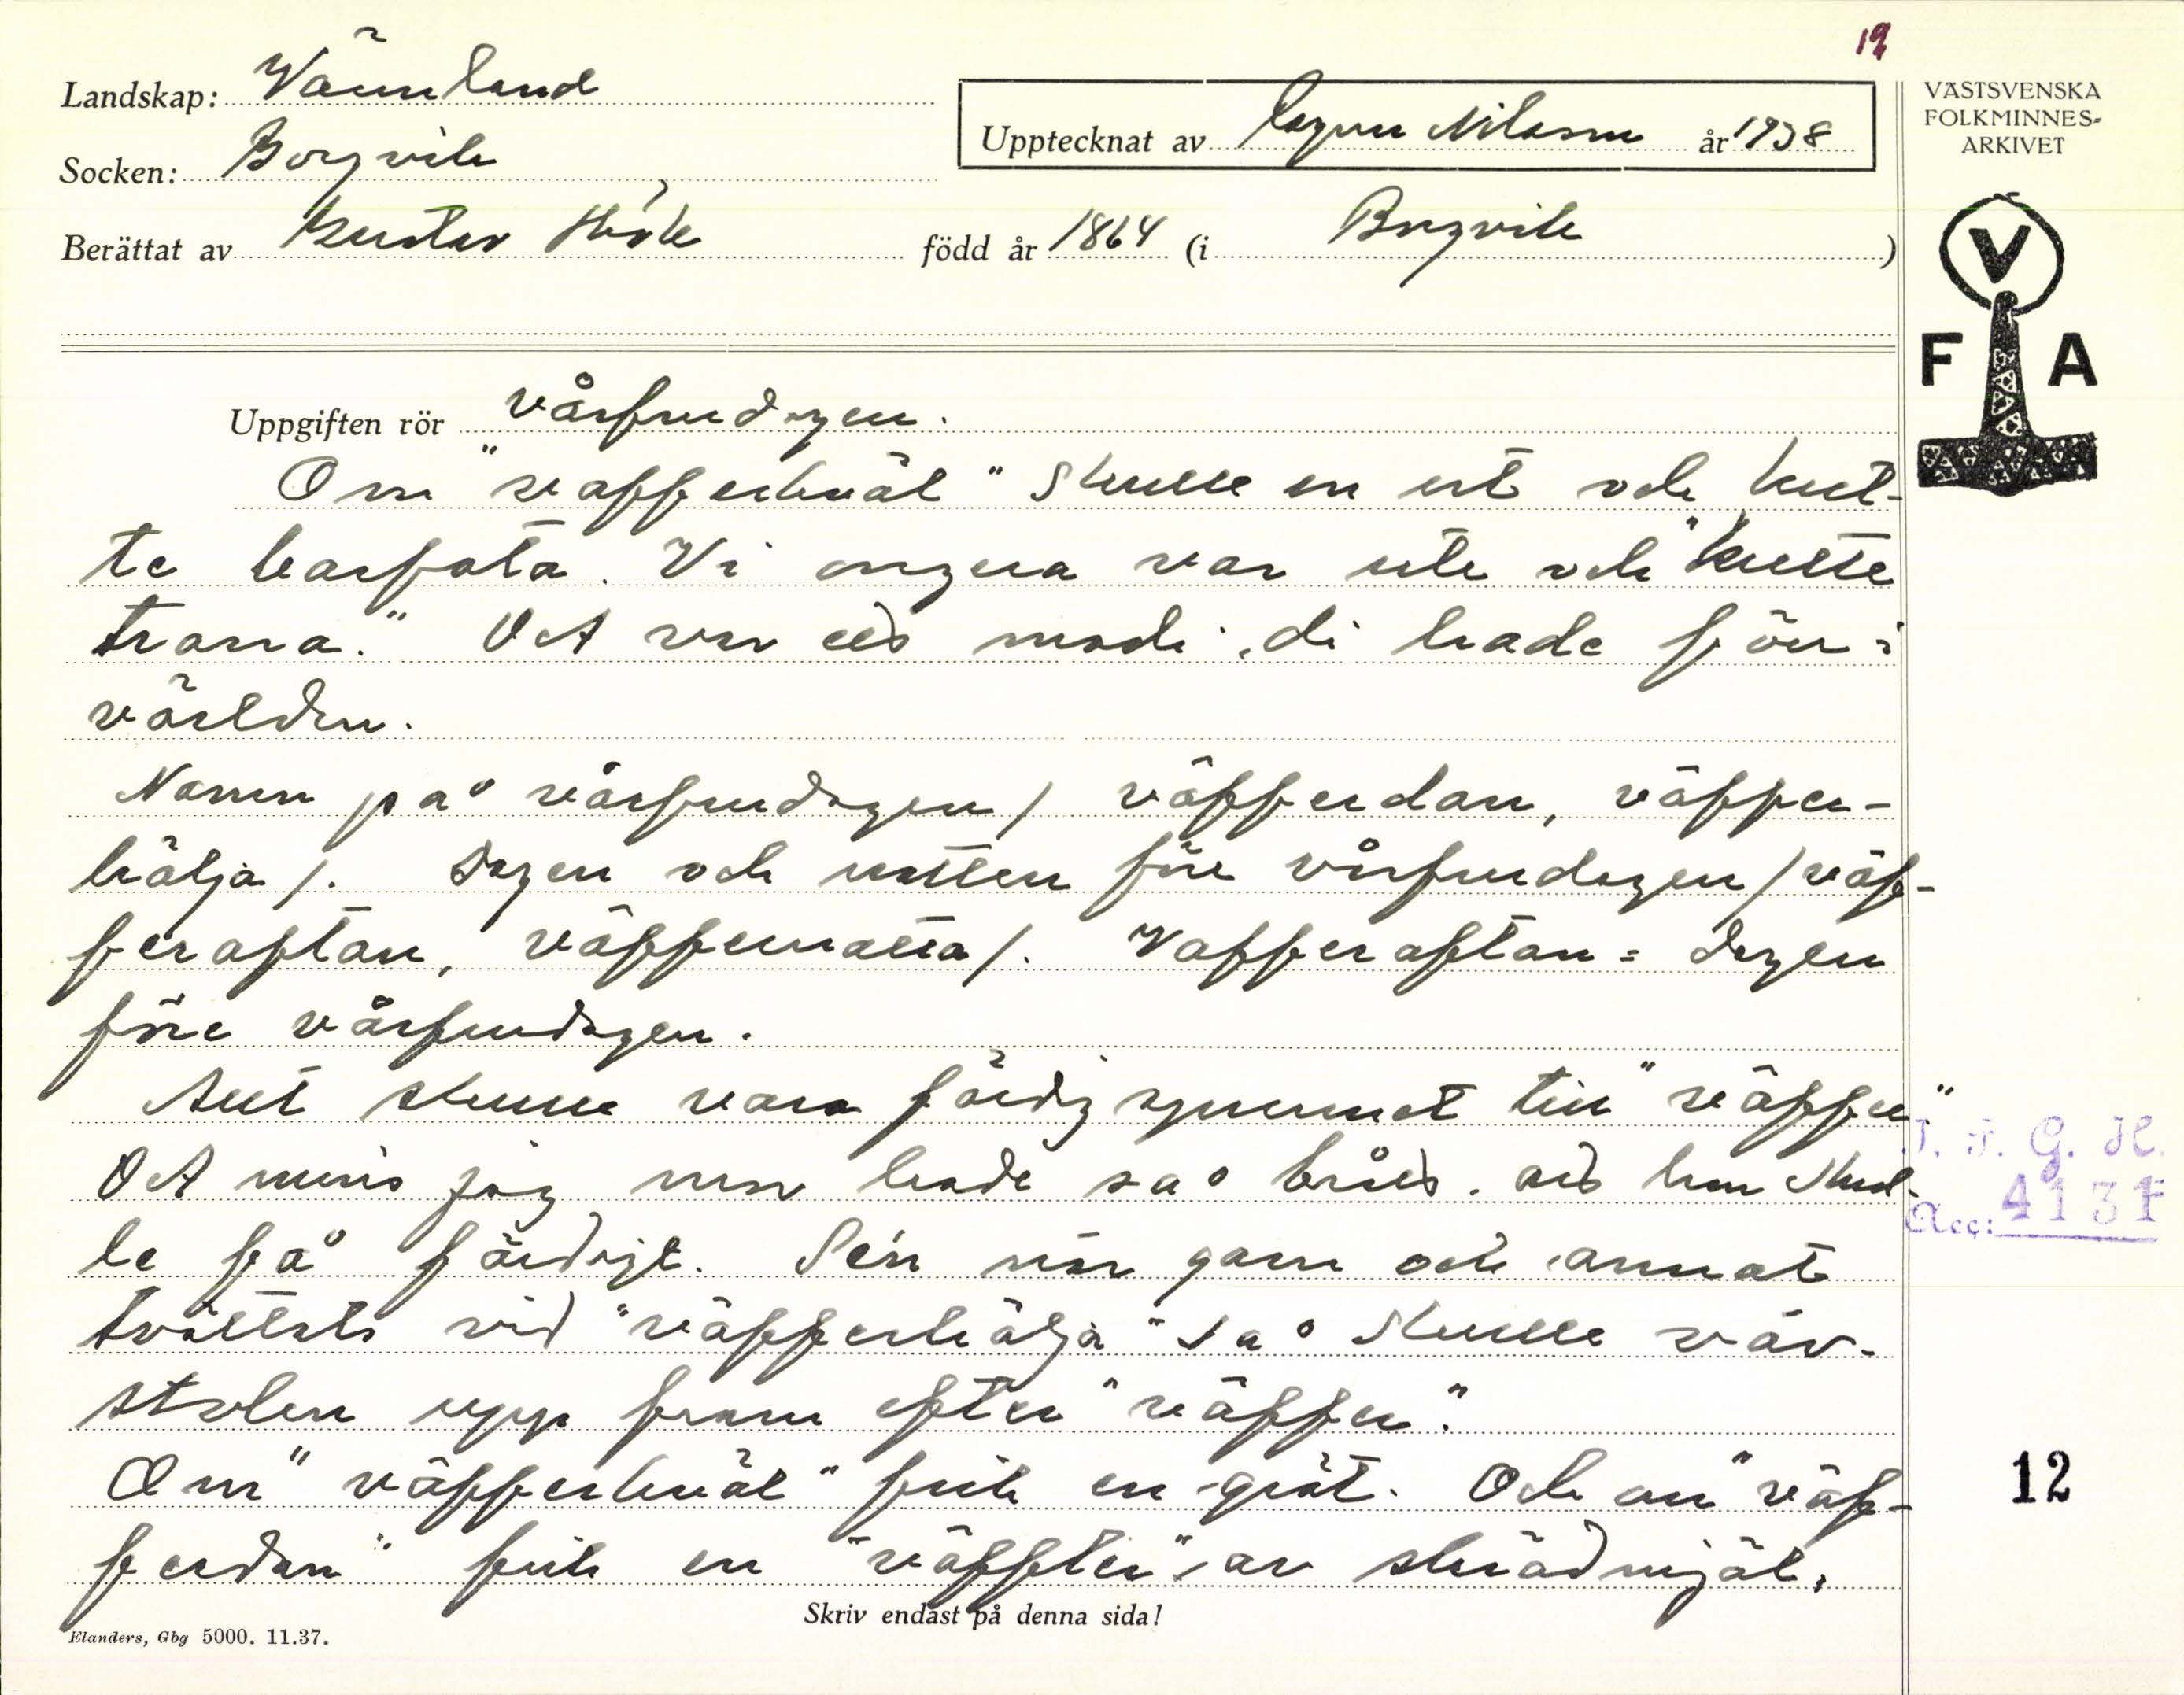 19
Landskap: Värmland
Upptecknat av Ragnar Nilsson år 1938
VÄSTSVENSKA
FOLKMINNES-
ARKIVET
Socken: Borgvik
Berättat av Gustav Hök född år 1864 (i Borgvik)
V
F A
Uppgiften rör vårfrudagen.
Om "vafferkväl" skulle en ut och kut-
te barfota. Vi ongera var ute och "kutte
trana." Det var ed mode, di hade förr i
världen.
Namn på vårfrudagen / väfferdan, väffer-
hälja /. Dagen och natten före vårfrudagen / väf-
feraftan, väffernatta /. Vafferaftan = dagen
före vårfrudagen.
Allt skulle vara färdig spunnet till "väffer"
Det minns jag mor hade så bråd. att hon skul-
le få färdigt. Se'n när garn och annat
tvättats vid "väfferhälja" så skulle väv-
stolen upp fram efter "väffer".
Om "väfferkväl" fick en gröt. Och om "väf-
ferdan" fick en "väffler" av skrädmjöl.
I. F. G. H.
Acc: 4131
12
Skriv endast på denna sida!
Elanders, Gbg 5000. 11.37.